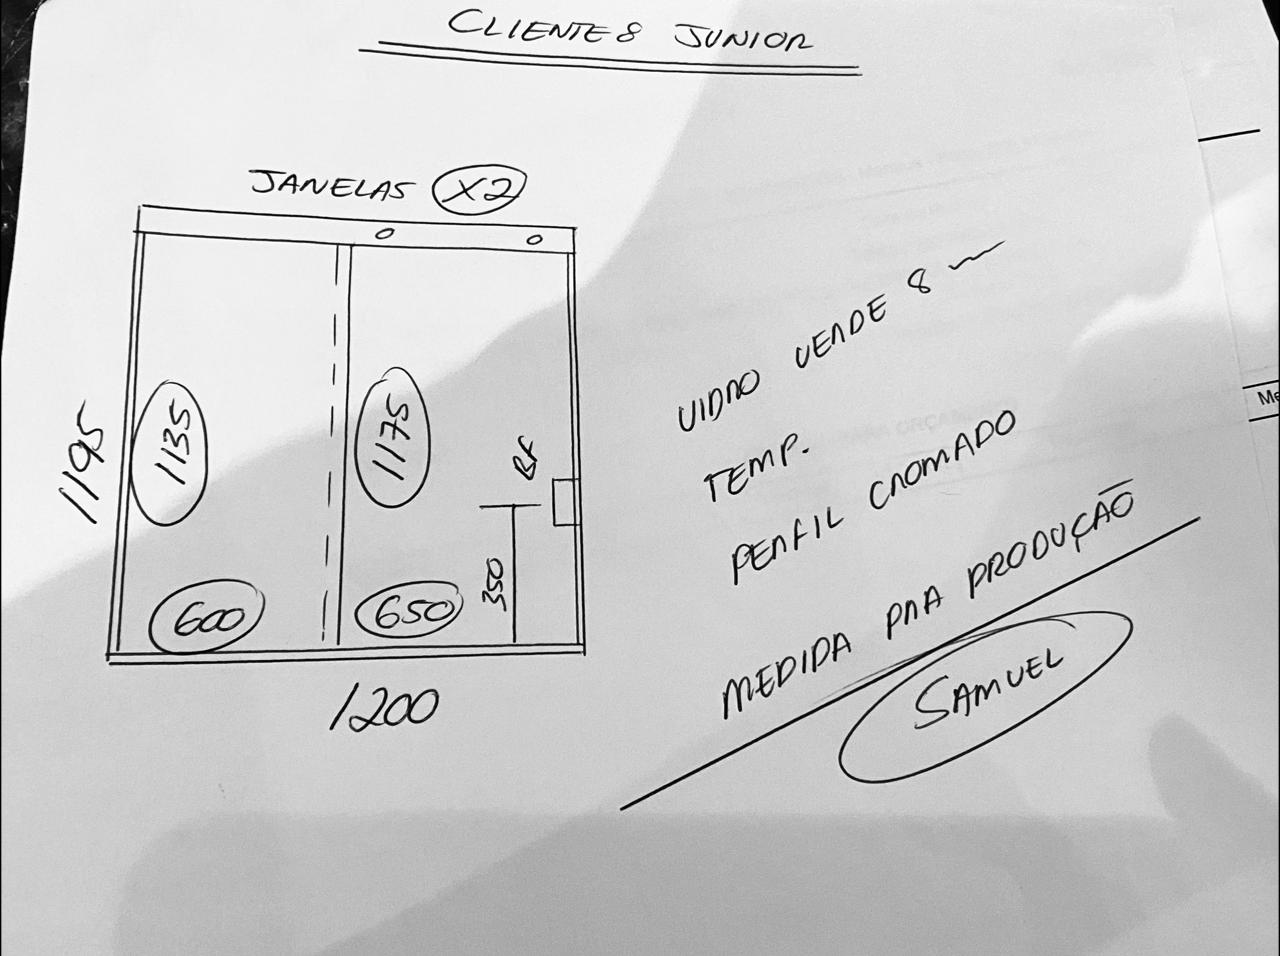 CLIENTE8 JUNIOR
JANELAS X2
1195
1135
1175
BF
350
600
650
1200
VIDRO VERDE 8
TEMP.
PERFIL CROMADO
MEDIDA PRA PRODUÇÃO
SAMUEL
Me